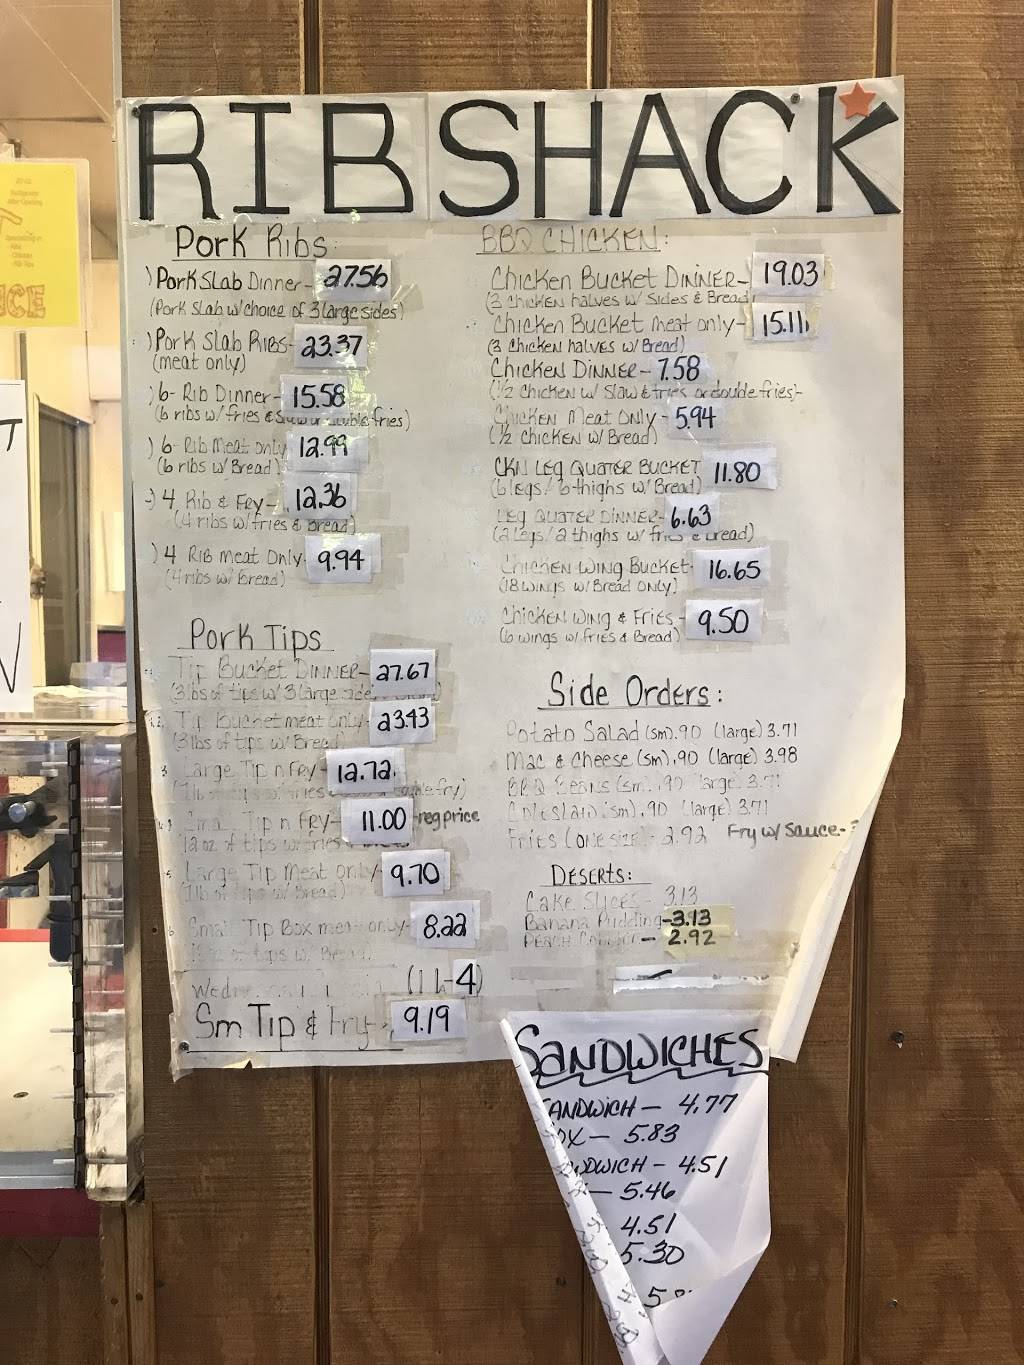 RIB SHACK
Pork Ribs:
Pork Slab Dinner- 27.56
(Pork Slab w/ choice of 3 large sides)
Pork Slab Ribs- 23.37
(meat only)
6- Rib Dinner- 15.58
(6 ribs w/ fries & Slaw or double fries)
6- Rib Meat only 12.99
(6 ribs w/ Bread)
4 Rib & Fry- 12.36
(4 ribs w/ fries & bread)
4 Rib Meat Only- 9.94
(4 ribs w/ Bread)
Pork Tips
Tip Bucket Dinner- 27.67
(3 lbs of tips w/ 3 Large side
Tip Bucket meat only- 23.43
(3 lbs of tips w/ Bread
Large Tip n Fry- 12.72
Tip n Fry- 11.00 -reg price
12 oz of tips w/ fries
Large Tip Meat Only- 9.70
(1 lb of tips w/ Bread)
Small Tip Box meat only- 8.22
tips w/ Bread
(11-4)
Sm Tip & Fry- 9.19
BBQ CHICKEN:
Chicken Bucket Dinner- 19.03
(3 chicken halves w/ Sides & Bread
Chicken Bucket meat only- 15.11
(3 chicken halves w/ Bread)
Chicken Dinner- 7.58
(1/2 chicken w/ Slaw & fries or double fries)-
Chicken Meat Only - 5.94
(1/2 chicken w/ Bread)
CKN Leg Quater Bucket 11.80
(6 legs/ 6 thighs w/ Bread)
Leg Quater Dinner- 6.63
(2 Legs/2 thighs w/ fries & bread)
Chicken Wing Bucket- 16.65
(18 wings w/ Bread only)
Chicken Wing & Fries- 9.50
(6 wings w/ fries & Bread)
Side Orders:
Potato Salad (sm) .90 (large) 3.71
Mac & Cheese (sm) .90 (large) 3.98
BBQ Beans (sm) .90 large) 3.71
Coleslaw (sm) .90 (large) 3.71
Fries (one size) - 2.92 Fry w/ Sauce-
Deserts:
Cake Slices - 3.13
Banana Pudding- 3.13
Peach Cobbler - 2.92
Sandwiches
ANDWICH - 4.77
OX - 5.83
NDWICH - 4.51
- 5.46
4.51
5.30